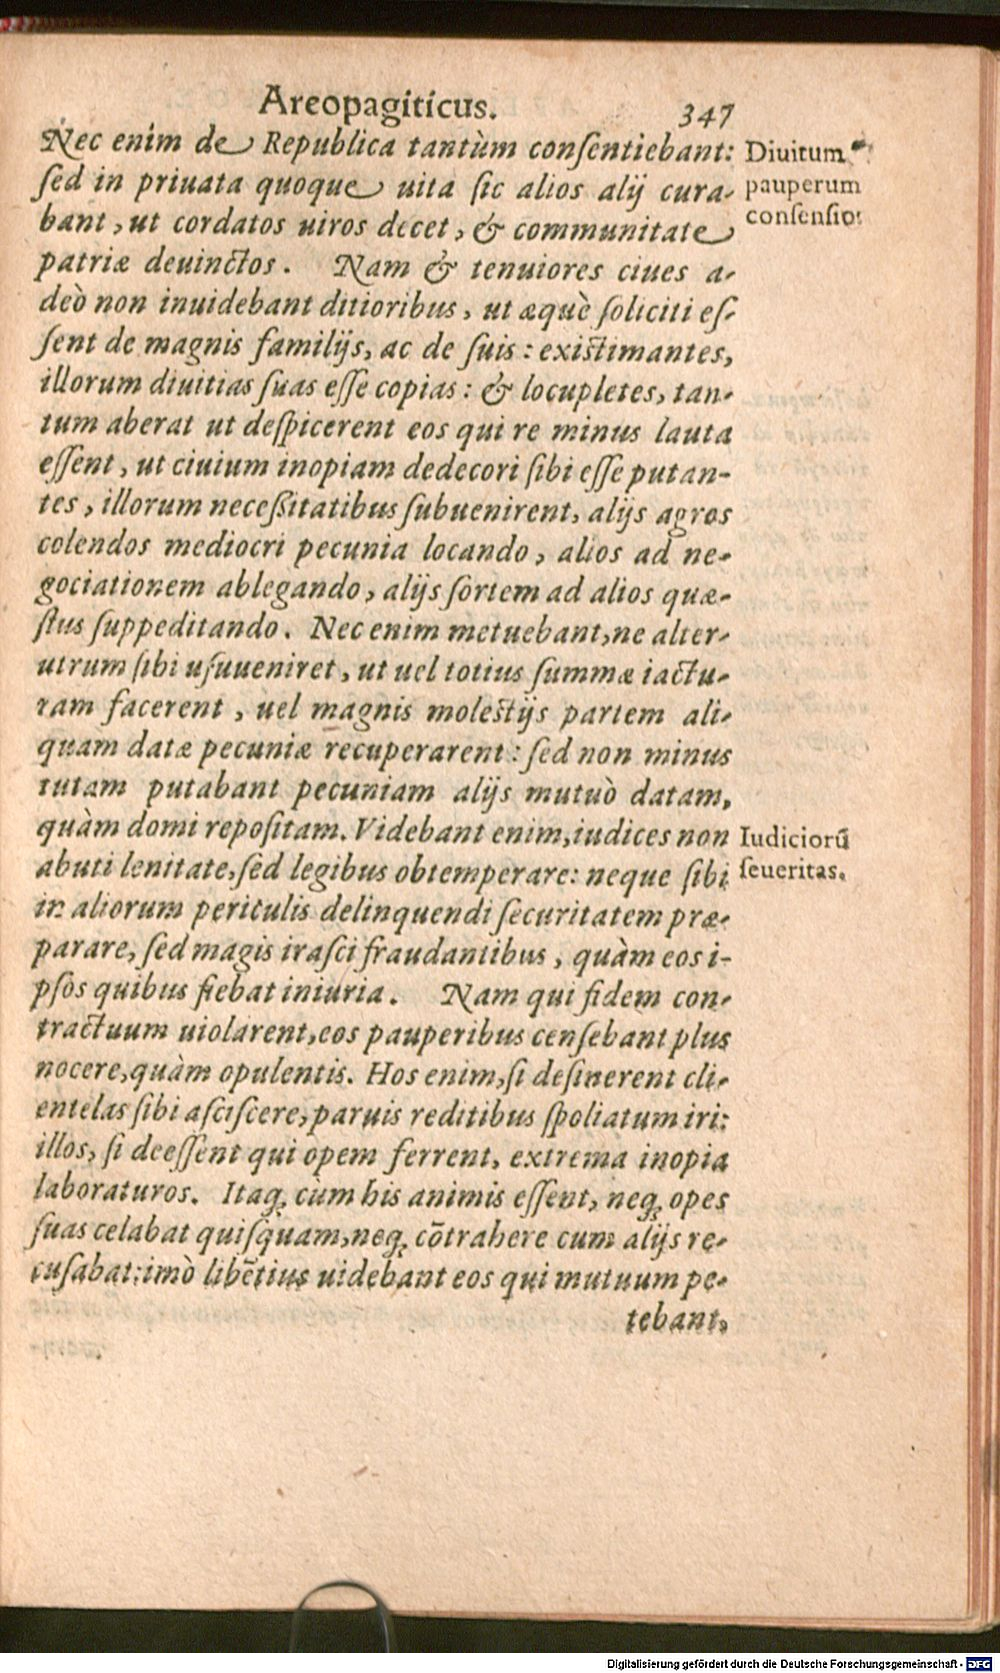 Areopagiticus. 347
Nec enim de Republica tantùm conſentiebant:
ſed in priuata quoque uita ſic alios alij cura-
bant, ut cordatos uiros decet, & communitate
patriæ deuinctos. Nam & tenuiores ciues a-
deò non inuidebant ditioribus, ut æquè ſoliciti eſ-
ſent de magnis familijs, ac de ſuis: existimantes,
illorum diuitias ſuas eſſe copias: & locupletes, tan-
tum aberat ut deſpicerent eos qui re minus lauta
eſſent, ut ciuium inopiam dedecori ſibi eſſe putan-
tes, illorum neceßitatibus ſubuenirent, alijs agros
colendos mediocri pecunia locando, alios ad ne-
gociationem ablegando, alijs ſortem ad alios quæ-
ſtus ſuppeditando. Nec enim metuebant, ne alter-
utrum ſibi uſuueniret, ut uel totius ſummæ iactu-
ram facerent, uel magnis molestijs partem ali-
quam datæ pecuniæ recuperarent: ſed non minus
tutam putabant pecuniam alijs mutuò datam,
quàm domi repoſitam. Videbant enim, iudices non
abuti lenitate, ſed legibus obtemperare: neque ſibi
in aliorum periculis delinquendi ſecuritatem præ-
parare, ſed magis iraſci fraudantibus, quàm eos i-
pſos quibus fiebat iniuria. Nam qui fidem con-
tractuum uiolarent, eos pauperibus cenſebant plus
nocere, quàm opulentis. Hos enim, ſi deſinerent cli-
entelas ſibi aſciſcere, paruis reditibus ſpoliatum iri:
illos, ſi deeſſent qui opem ferrent, extrema inopia
laboraturos. Itaq; cùm his animis eſſent, neq; opes
ſuas celabat quiſquam, neq; cōtrahere cum alijs re-
cuſabat: imò libētius uidebant eos qui mutuum pe-
tebant,
Diuitum
pauperum
conſenſio.
Iudiciorū
ſeueritas.
Digitalisierung gefördert durch die Deutsche Forschungsgemeinschaft - DFG